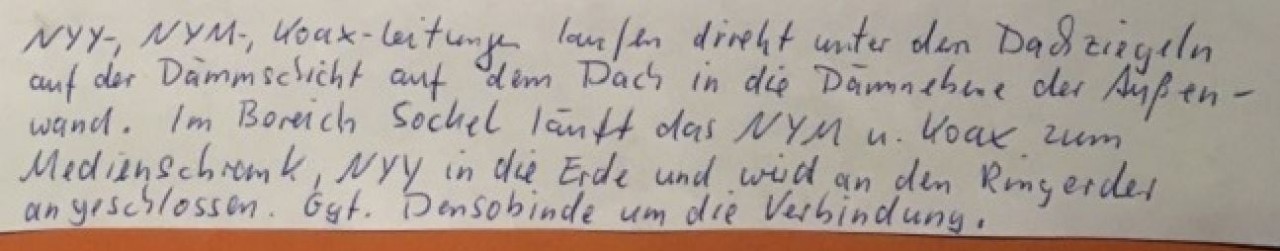 NYY-, NYM-, Koax-Leitungen laufen direkt unter den Dachziegeln
auf der Dämmschicht auf dem Dach in die Dämmebene der Außen-
wand. Im Bereich Sockel läuft das NYM u. Koax zum
Medienschrank, NYY in die Erde und wird an den Ringerder
angeschlossen. Ggf. Densobinde um die Verbindung.